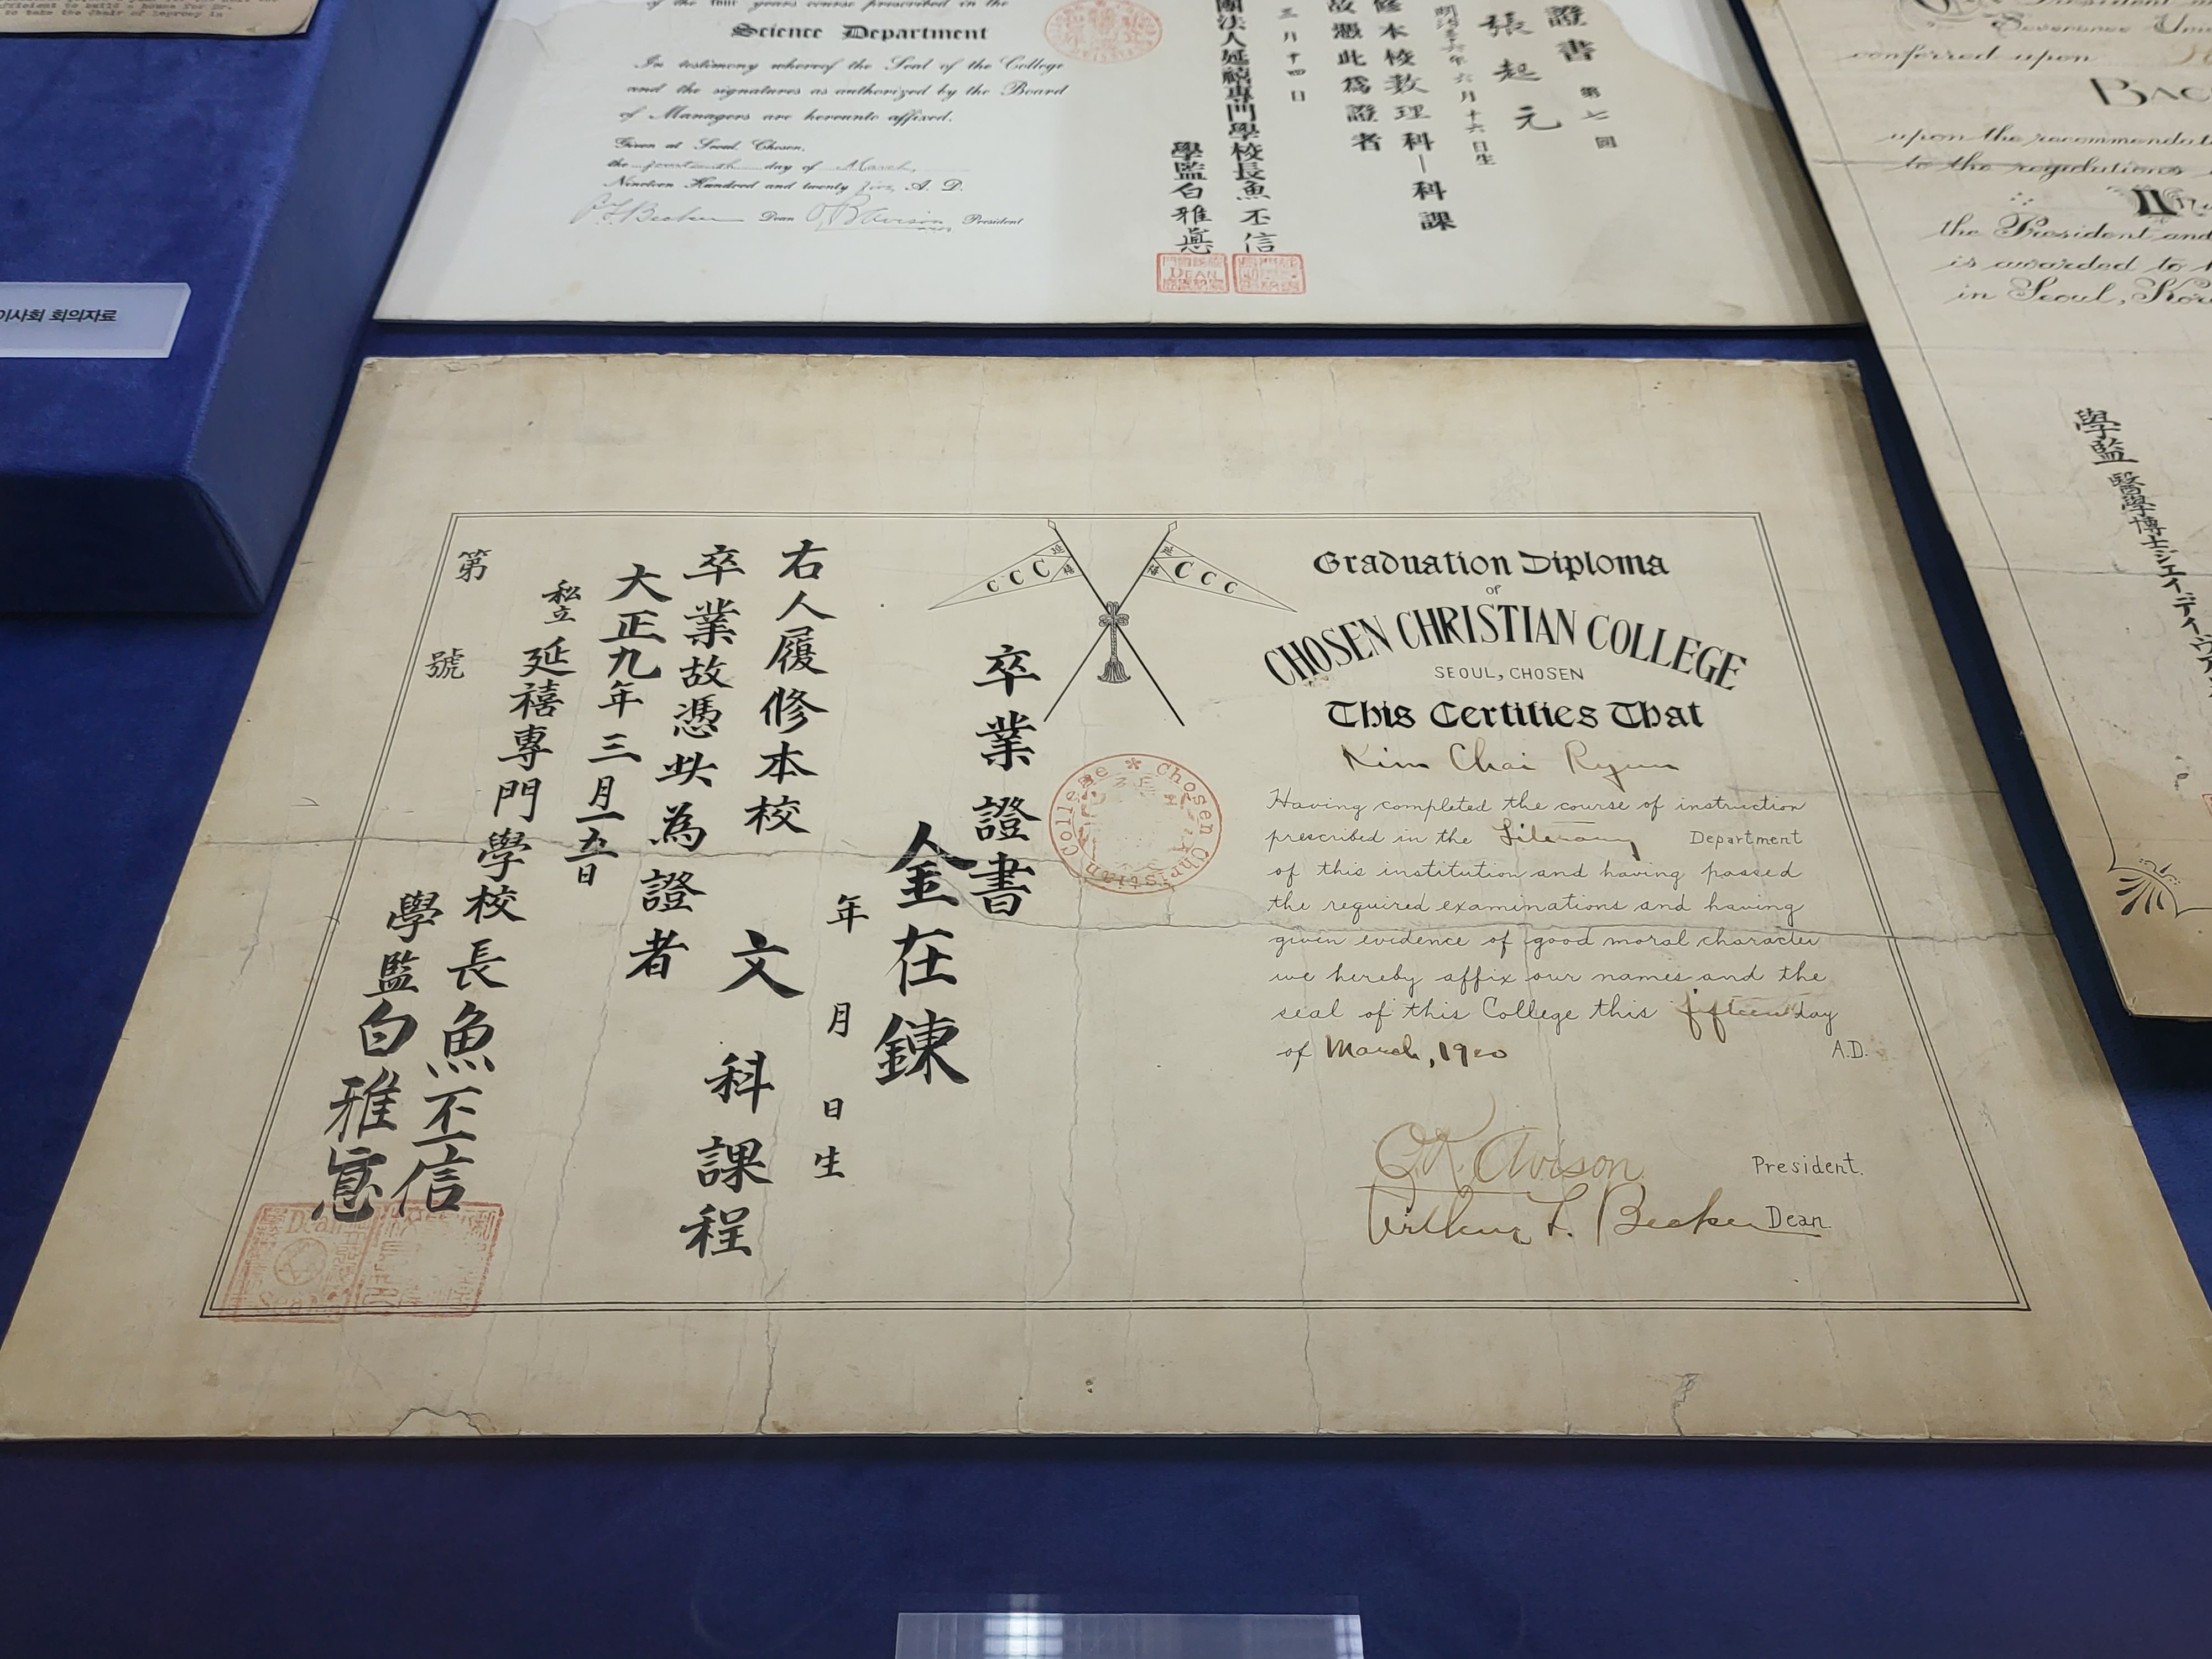 to take the Chair of Leprosy in
이사회 회의자료
of the four years course prescribed in the
Science Department
In testimony whereof the Seal of the College
and the signatures as authorized by the Board
of Managers are hereunto affixed.
Given at Seoul, Chosen,
the fourteenth day of March,
Nineteen Hundred and twenty five, A. D.
Dean O R Avison President
證書
第七回
張起元
六月十六日生
修本校數理科一科課
故憑此爲證者
三月十四日
團法人延禧專門學校長魚丕信
學監白雅悳
DEAN
President
Severance
conferred upon
upon the recommendat
to the regulations
the President and
is awarded to
in Seoul, Kor
學監 醫學博士ジエイ、デイ、ヴア
Graduation Diploma
of
CHOSEN CHRISTIAN COLLEGE
SEOUL, CHOSEN
This Certifies That
Kim Chai Ryun
Having completed the course of instruction
prescribed in the Literary Department
of this institution and having passed
the required examinations and having
given evidence of good moral character
we hereby affix our names and the
seal of this College this fifteen day
of March, 1920 A.D.
O R Avison President.
Arthur L. Becker Dean
CCC
延禧
CCC
延禧
Chosen Christian College
卒業證書
金在鍊
年月日生
右人履修本校文科課程
卒業故憑此為證者
大正九年三月一五日
私立延禧專門學校長魚丕信
學監白雅悳
第 號
Dean
Seal